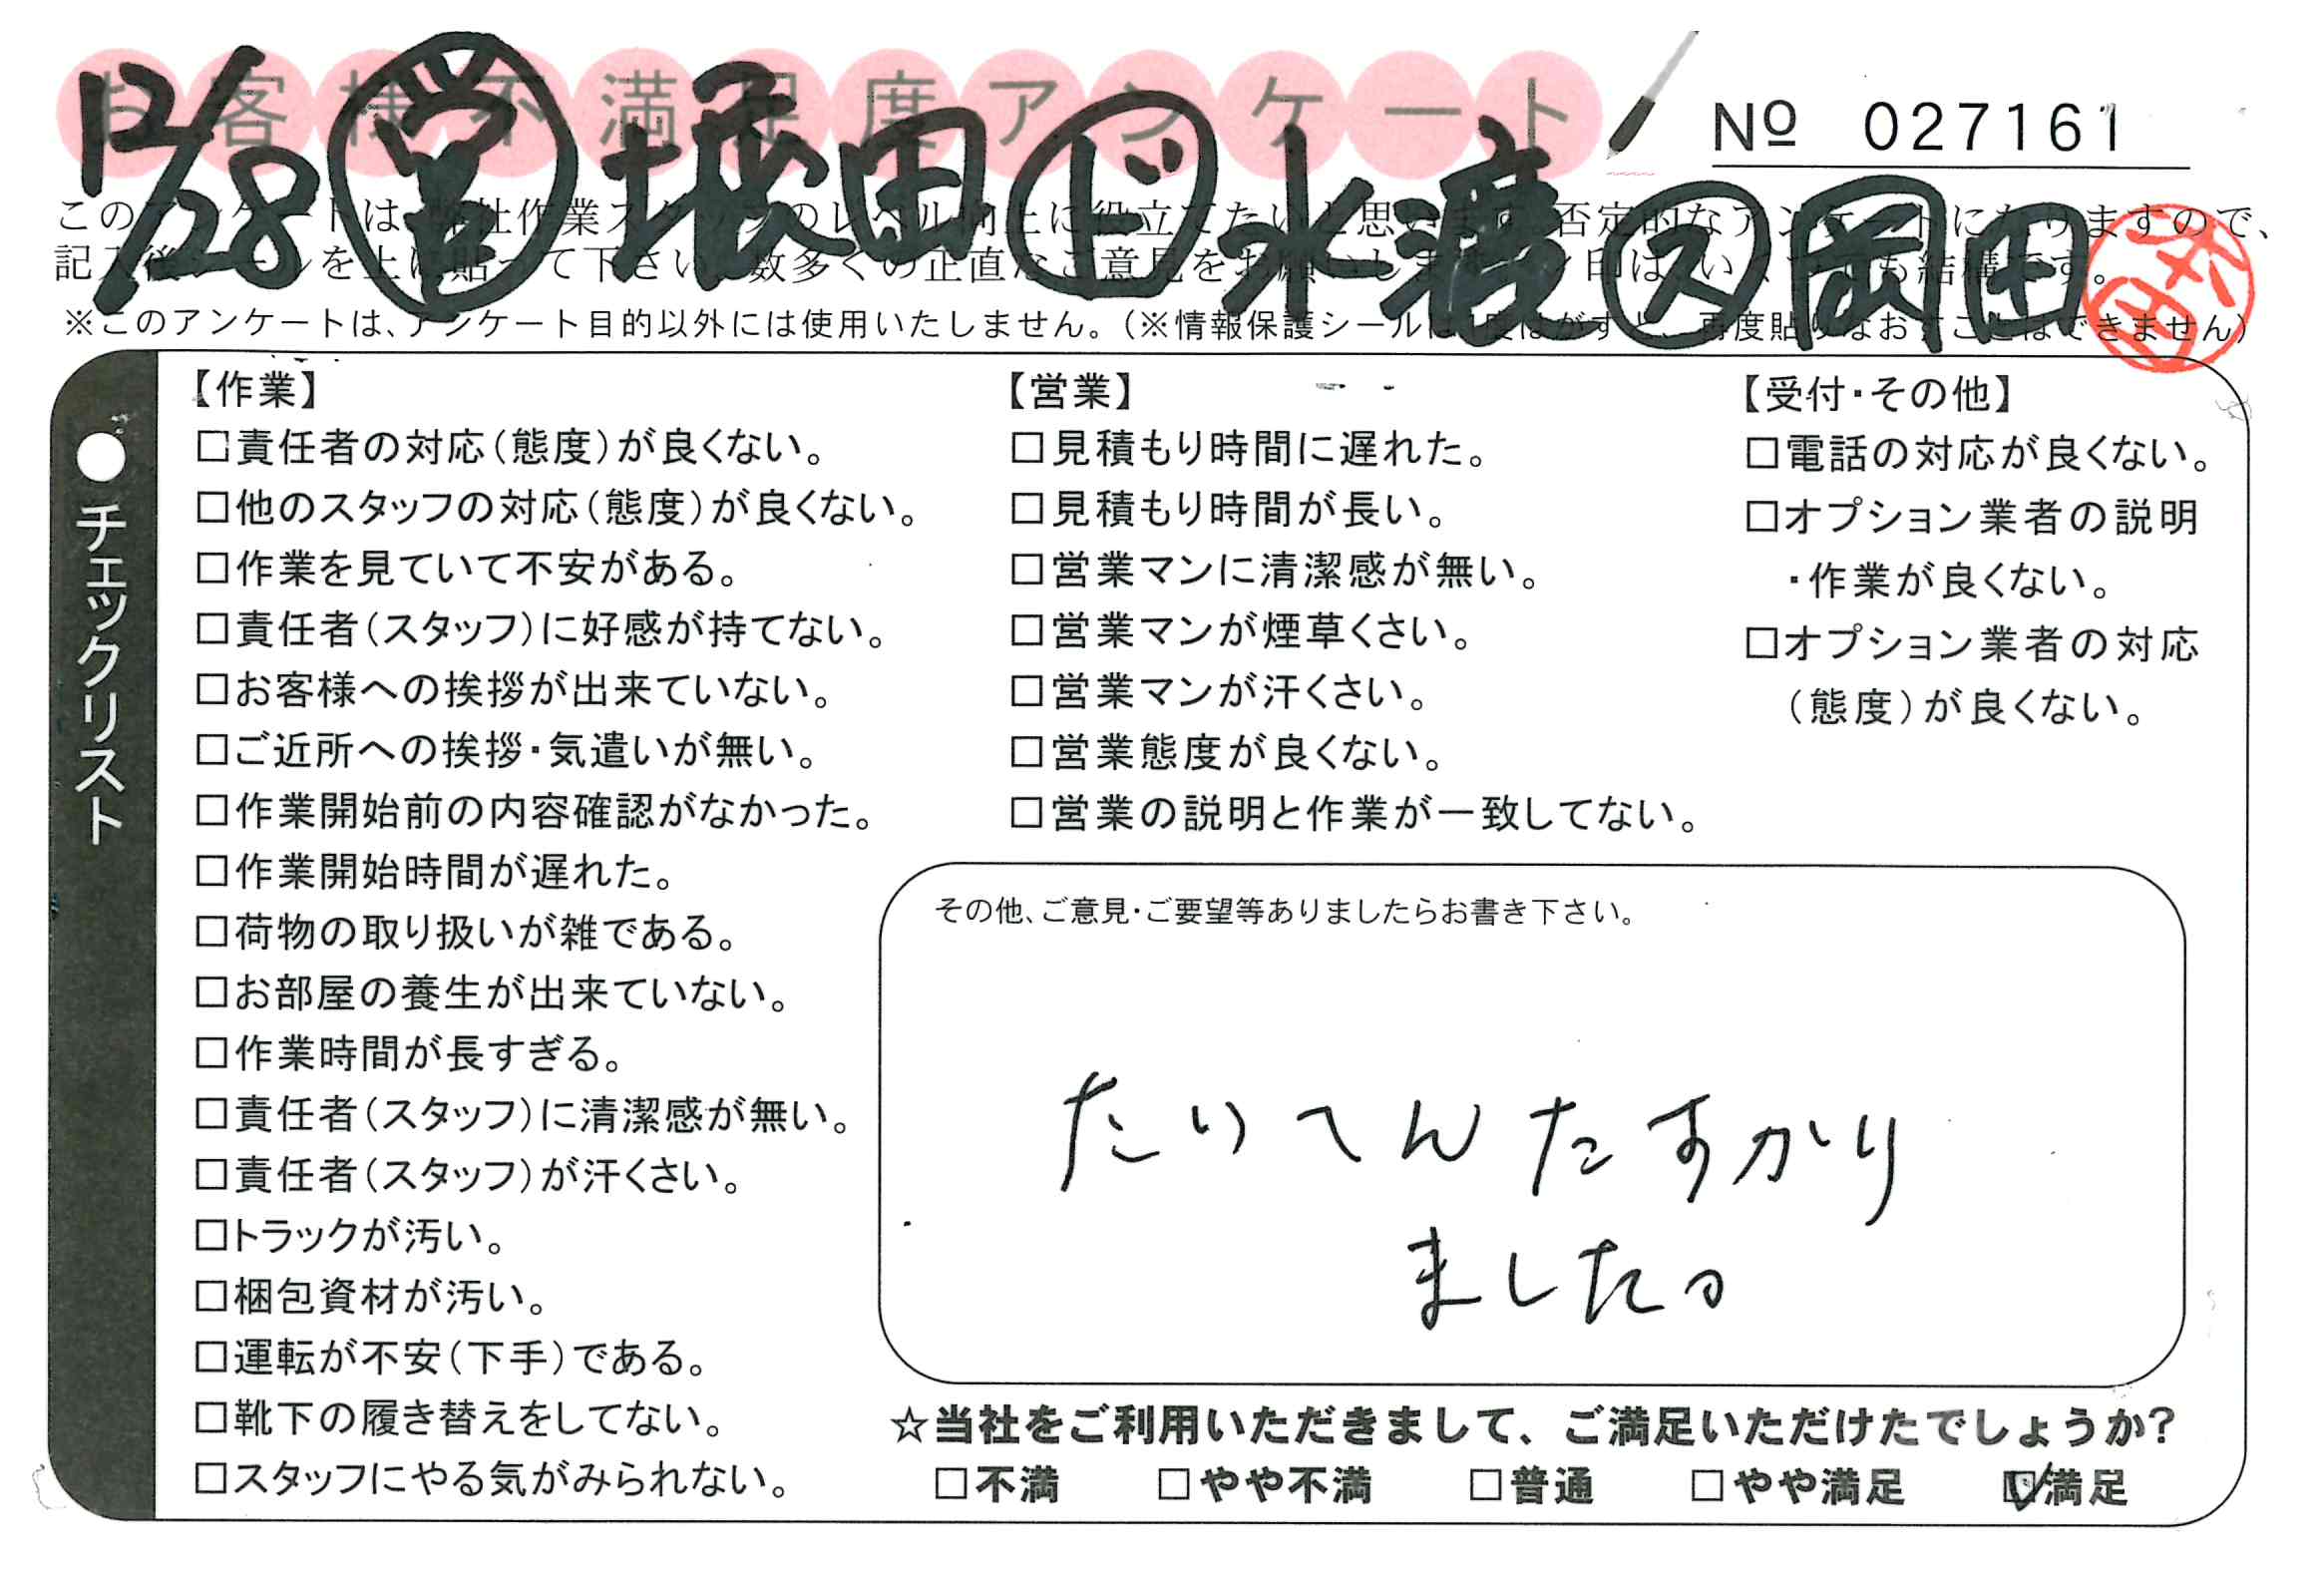 お客様不満足度アンケート
№ 027161
12/28 営 堀田 ド 水渡 ス 岡田
このアンケートは、弊社作業スタッフのレベル向上に役立てたいと思います。否定的なアンケートになりますので、
記入後シールを上に貼って下さい。数多くの正直なご意見をお願いします。
※このアンケートは、アンケート目的以外には使用いたしません。(※情報保護シールは一度はがすと、再度貼りなおすことはできません)
●チェックリスト
【作業】
□責任者の対応(態度)が良くない。
□他のスタッフの対応(態度)が良くない。
□作業を見ていて不安がある。
□責任者(スタッフ)に好感が持てない。
□お客様への挨拶が出来ていない。
□ご近所への挨拶・気遣いが無い。
□作業開始前の内容確認がなかった。
□作業開始時間が遅れた。
□荷物の取り扱いが雑である。
□お部屋の養生が出来ていない。
□作業時間が長すぎる。
□責任者(スタッフ)に清潔感が無い。
□責任者(スタッフ)が汗くさい。
□トラックが汚い。
□梱包資材が汚い。
□運転が不安(下手)である。
□靴下の履き替えをしてない。
□スタッフにやる気がみられない。
【営業】
□見積もり時間に遅れた。
□見積もり時間が長い。
□営業マンに清潔感が無い。
□営業マンが煙草くさい。
□営業マンが汗くさい。
□営業態度が良くない。
□営業の説明と作業が一致してない。
【受付・その他】
□電話の対応が良くない。
□オプション業者の説明
・作業が良くない。
□オプション業者の対応
(態度)が良くない。
その他、ご意見・ご要望等ありましたらお書き下さい。
たいへんたすかり
ました。
☆当社をご利用いただきまして、ご満足いただけたでしょうか?
□不満 □やや不満 □普通 □やや満足 ☑満足